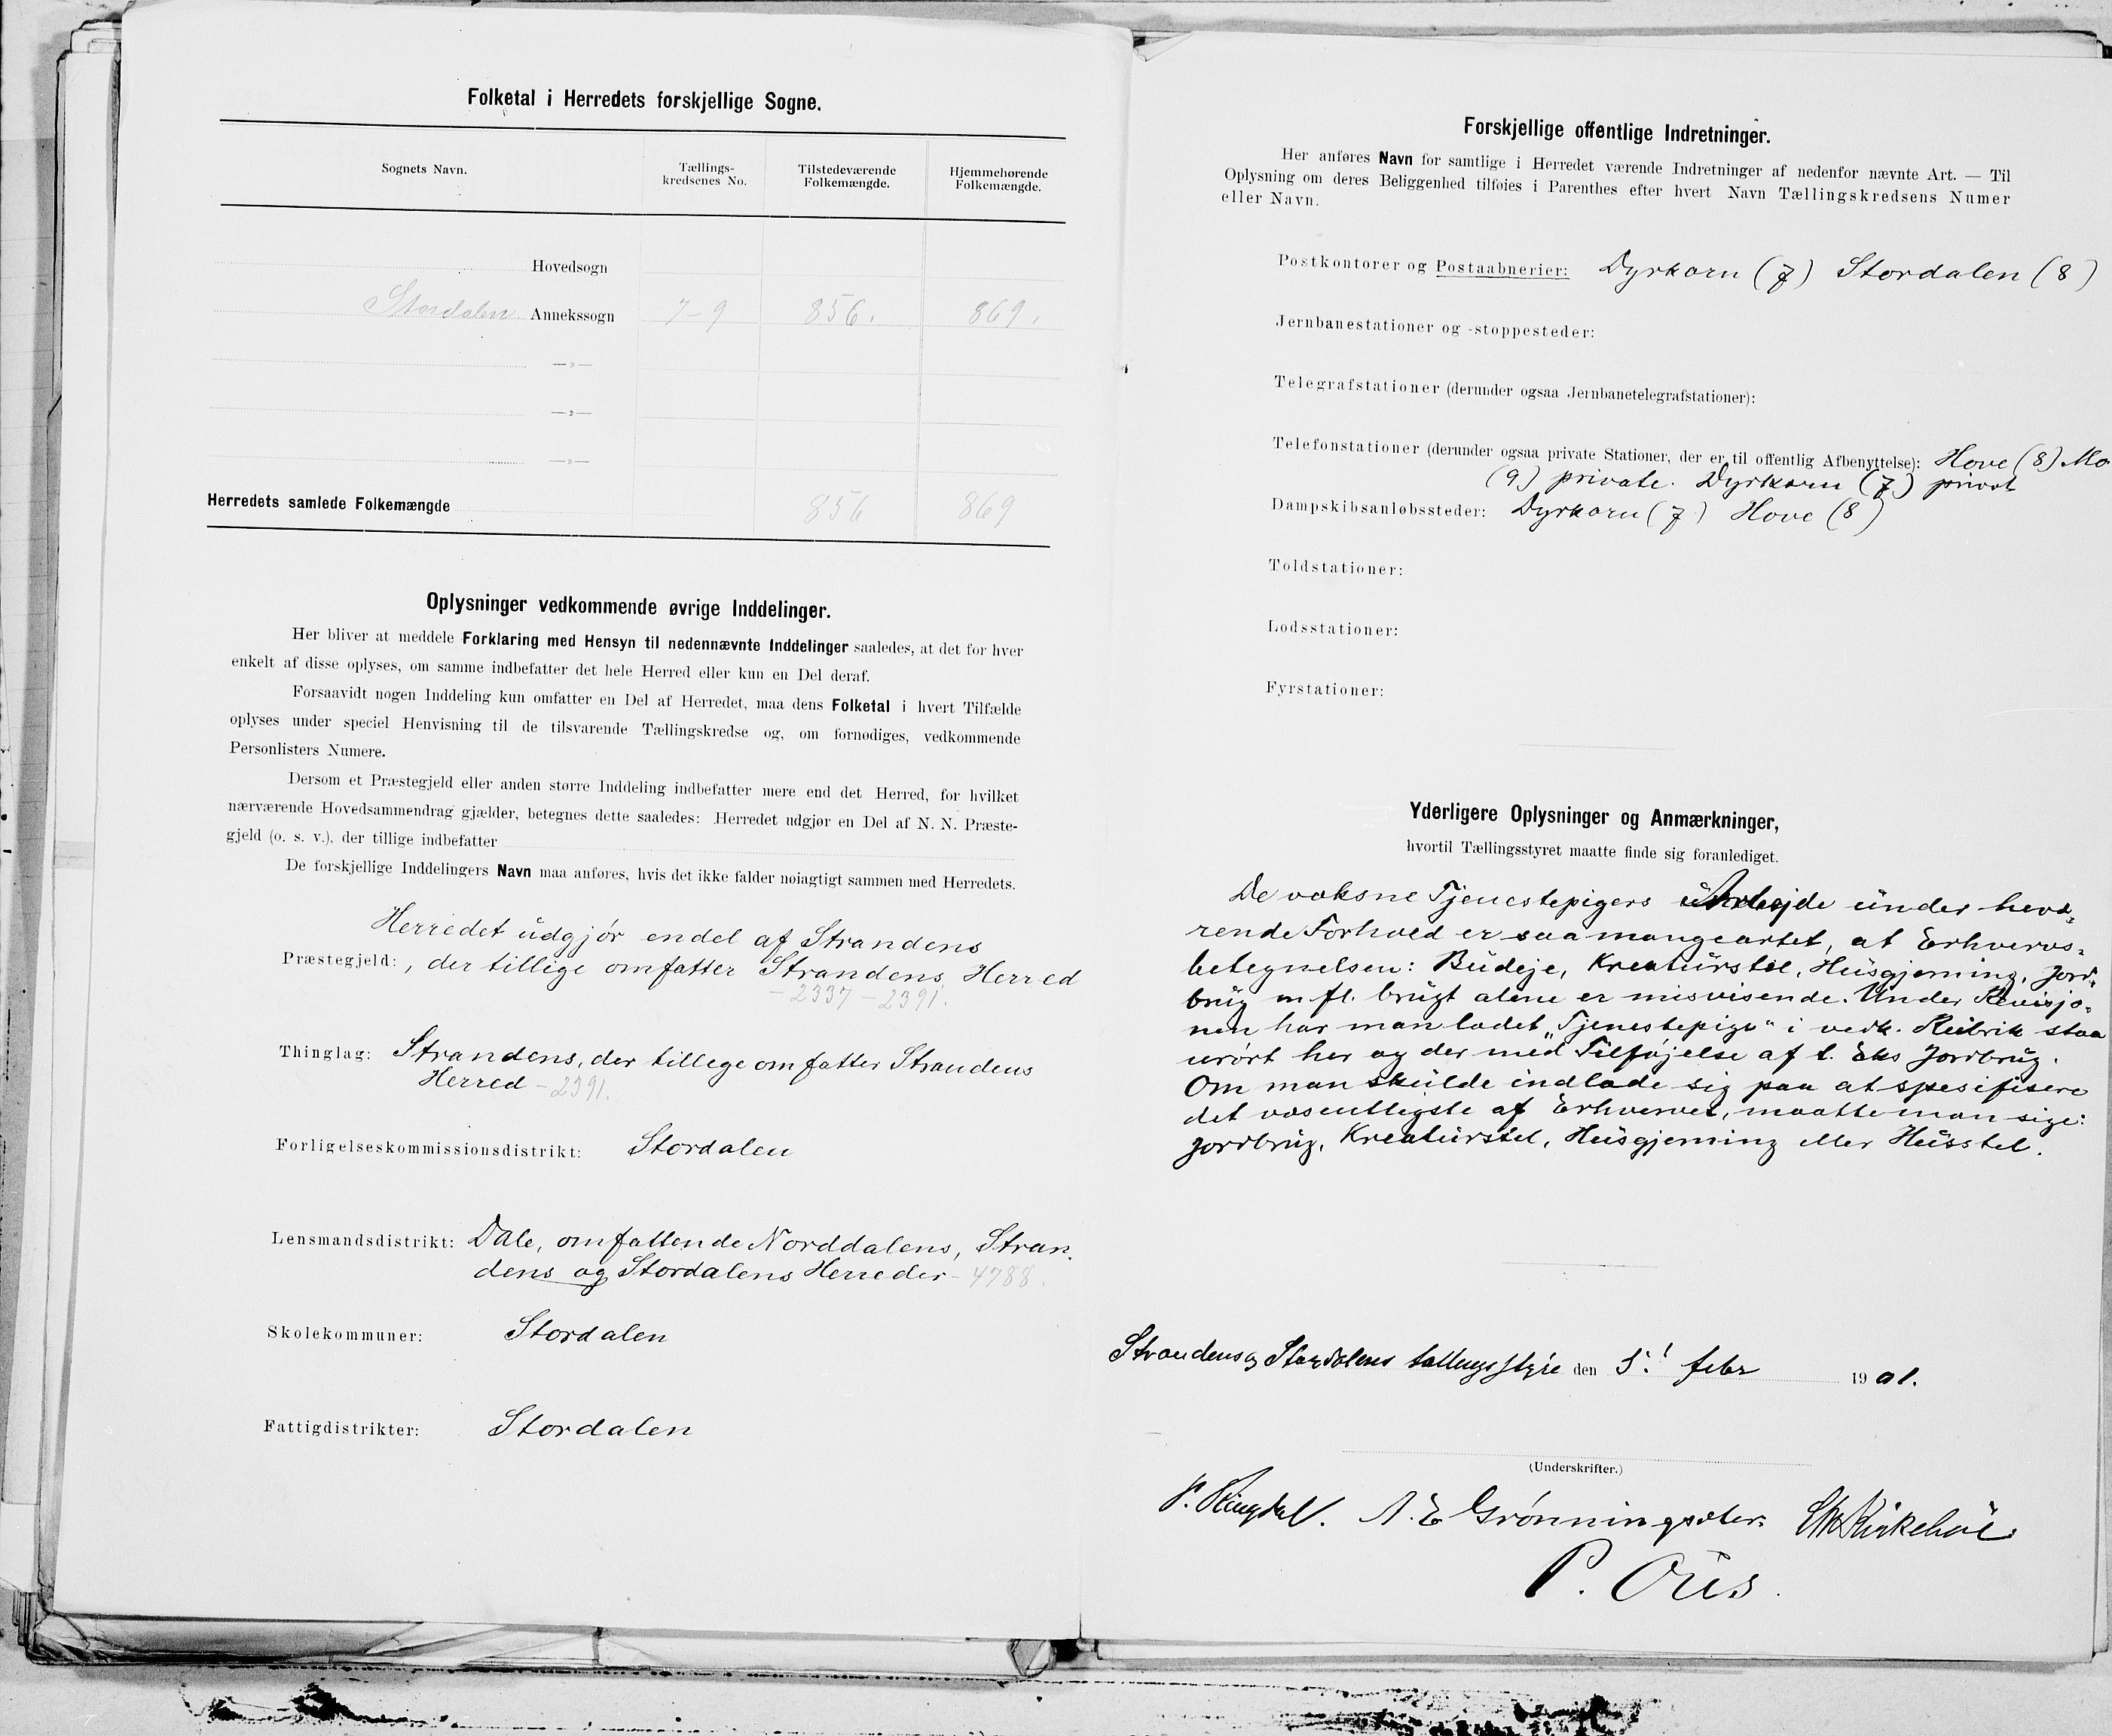 Folketal i Herredets forskjellige Sogne.
Sognets Navn.
Tællings-
kredsenes No.
Tilstedeværende
Folkemængde.
Hjemmehørende
Folkemængde.
Hovedsogn
Stordalen Annekssogn 7-9 856. 869.
—„—
—„—
—„—
Herredets samlede Folkemængde 856 869
Oplysninger vedkommende øvrige Inddelinger.
Her bliver at meddele Forklaring med Hensyn til nedennævnte Inddelinger saaledes, at det for hver
enkelt af disse oplyses, om samme indbefatter det hele Herred eller kun en Del deraf.
Forsaavidt nogen Inddeling kun omfatter en Del af Herredet, maa dens Folketal i hvert Tilfælde
oplyses under speciel Henvisning til de tilsvarende Tællingskredse og, om fornødiges, vedkommende
Personlisters Numere.
Dersom et Præstegjeld eller anden større Inddeling indbefatter mere end det Herred, for hvilket
nærværende Hovedsammendrag gjælder, betegnes dette saaledes: Herredet udgjør en Del af N. N. Præste-
gjeld (o. s. v.), der tillige indbefatter
De forskjellige Inddelingers Navn maa anføres, hvis det ikke falder nøiagtigt sammen med Herredets.
Herredet udgjør endel af Strandens
Præstegjeld: , der tillige omfatter Strandens Herred
- 2337 - 2391.
Thinglag: Strandens, der tillege omfatter Strandens
Herred - 2391.
Forligelseskommissionsdistrikt: Stordalen
Lensmandsdistrikt: Dale, omfattende Norddalens, Stran-
dens og Stordalens Herreder - 4788.
Skolekommuner: Stordalen
Fattigdistrikter: Stordalen
Forskjellige offentlige Indretninger.
Her anføres Navn for samtlige i Herredet værende Indretninger af nedenfor nævnte Art. — Til
Oplysning om deres Beliggenhed tilføies i Parenthes efter hvert Navn Tællingskredsens Numer
eller Navn.
Postkontorer og Postaabnerier: Dyrkorn (7) Stordalen (8)
Jernbanestationer og -stoppesteder:
Telegrafstationer (derunder ogsaa Jernbanetelegrafstationer):
Telefonstationer (derunder ogsaa private Stationer, der er til offentlig Afbenyttelse): Hove (8) Mo
(9) private. Dyrkorn (7) privat
Dampskibsanløbssteder: Dyrkorn (7) Hove (8)
Toldstationer:
Lodsstationer:
Fyrstationer:
Yderligere Oplysninger og Anmærkninger,
hvortil Tællingsstyret maatte finde sig foranlediget.
De voksne Tjenestepigers Arbejde under herv-
rende Forhold er saa mangeartet, at Erhvervs-
betegnelsen: Budeje, Kreaturstel, Husgjerning, Jord-
brug m fl. brugt alene er misvisende. Under Revisjo-
nen har man ladet „Tjenestepige" i vedk. Rubrik staa
urørt her og der med Tilføjelse af t. Eks Jordbrug.
Om man skulde indlade sig paa at spesifisere
det væsentligste af Erhvervet, maatte man sige:
Jordbrug, Kreaturstel, Husgjerning eller Husstel.
Strandens og Stordalens tællingsstyre den 5! febr 1901.
(Underskrifter.)
P. Ringdal. A. E Grønningsæter.
P. Øus.